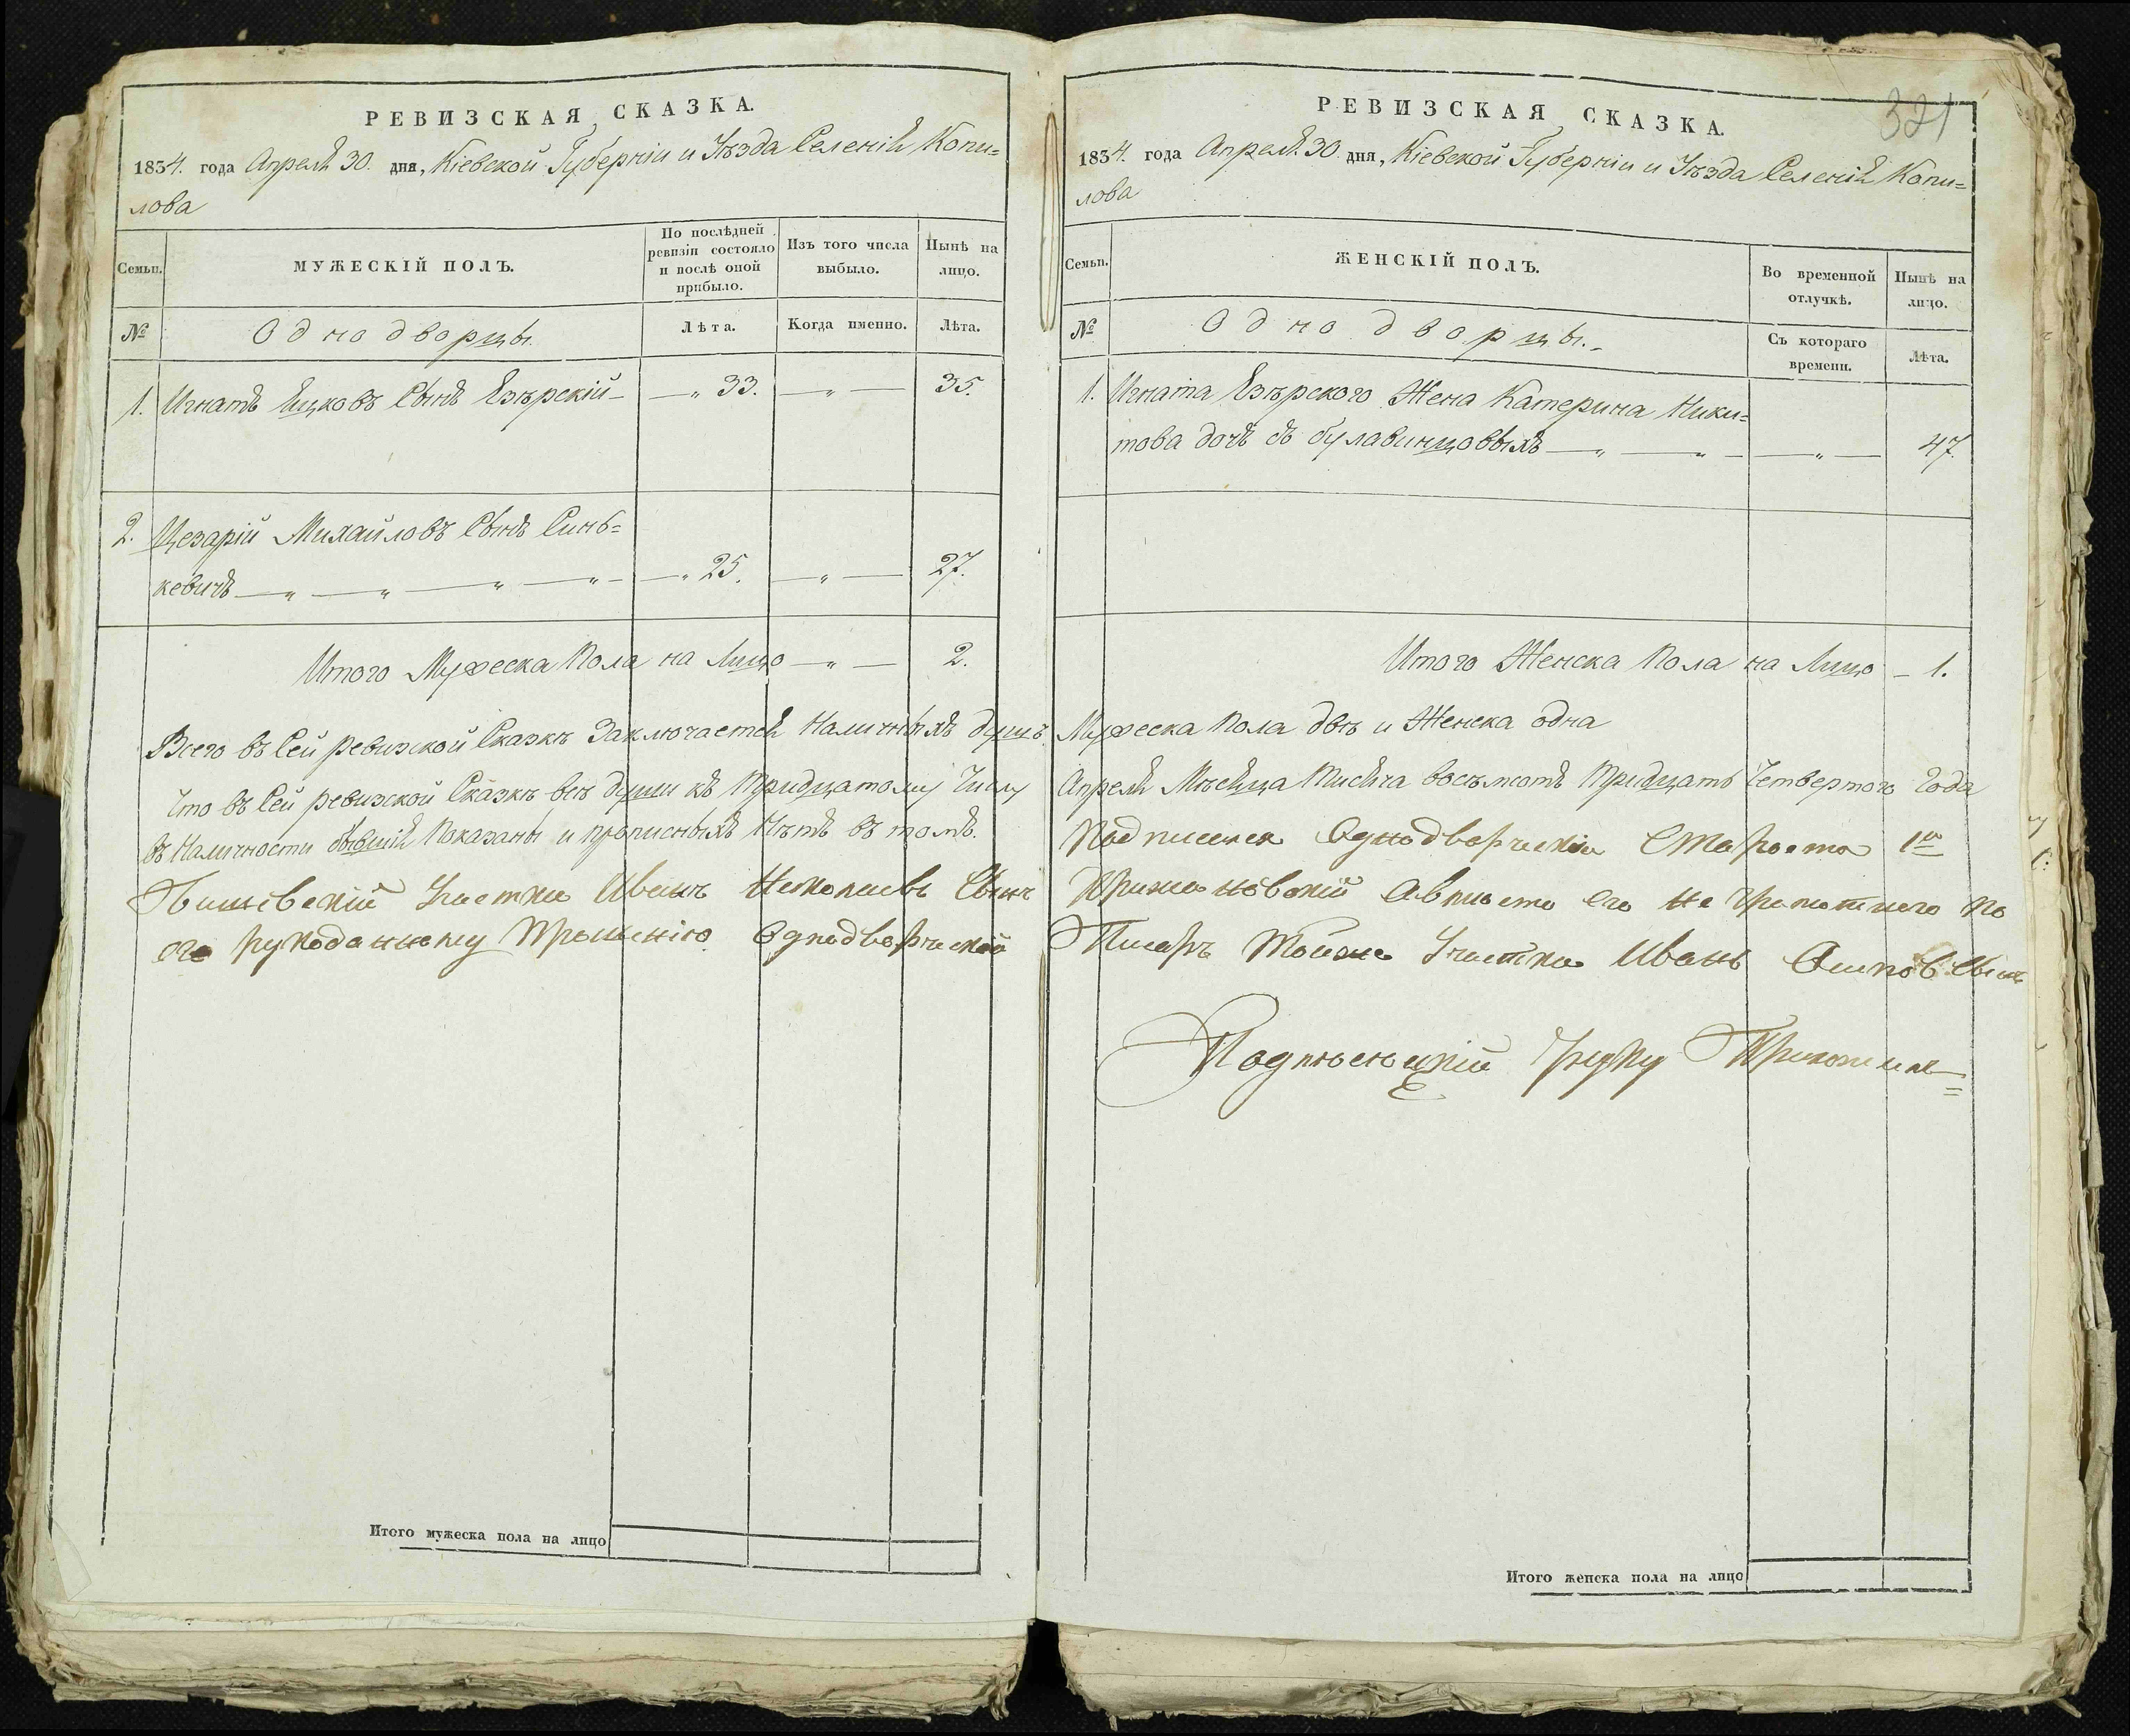 РЕВИЗСКАЯ СКАЗКА.
1834. года Апреля 30. дня, Кіевской Губерніи и Уѣзда Селенія Копи=
лова
Семьи.
МУЖЕСКІЙ ПОЛЪ.
По послѣдней
ревизіи состояло
и послѣ оной
прибыло.
Изъ того числа
выбыло.
Нынѣ на
лицо.
№
Однодворцы.
Лѣта.
Когда именно.
Лѣта.
1. Игнатъ Яцковъ Сынъ Езѣрскій — „ 33. — „ — 35.
2. Цезарій Михайловъ Сынъ Синь=
кевичъ — „ — „ — „ — „ — — „ 25. — „ — 27.
Итого Мужеска Пола на Лицо — „ — 2.
Всего въ Сей ревизской Сказкѣ Заключается Наличныхъ душъ
Что въ Сей ревизской Сказкѣ всѣ души къ Тридцатому Числу
въ Наличности бывшія Показаны и прописныхъ Нѣтъ въ томъ.
Участка Иванъ Сынъ
его рукоданному Прошенію Однодворческой
Итого мужеска пола на лицо
321
РЕВИЗСКАЯ СКАЗКА.
1834. года Апреля 30. дня, Кіевской Губерніи и Уѣзда Селенія Копи=
лова
Семьи.
ЖЕНСКІЙ ПОЛЪ.
Во временной
отлучкѣ.
Нынѣ на
лицо.
№
Однодворцы.
Съ котораго
времени.
Лѣта.
1. Игната Езѣрского Жена Катерина Ники=
това дочь съ булавинцовыхъ — „ — „ — — „ — 47.
Итого Женска Пола на Лицо — 1.
Мужеска Пола двѣ и Женска одна
Апреля Мѣсяца Тисяча восѣмсотъ Тридцать Четвертого Года
Подписался Однодворческій Староста 1го
а вмѣсто его не грамотного по
Писарь Тойже Участка Иванъ Осипов Сын
руку Приложил
Итого женска пола на лицо